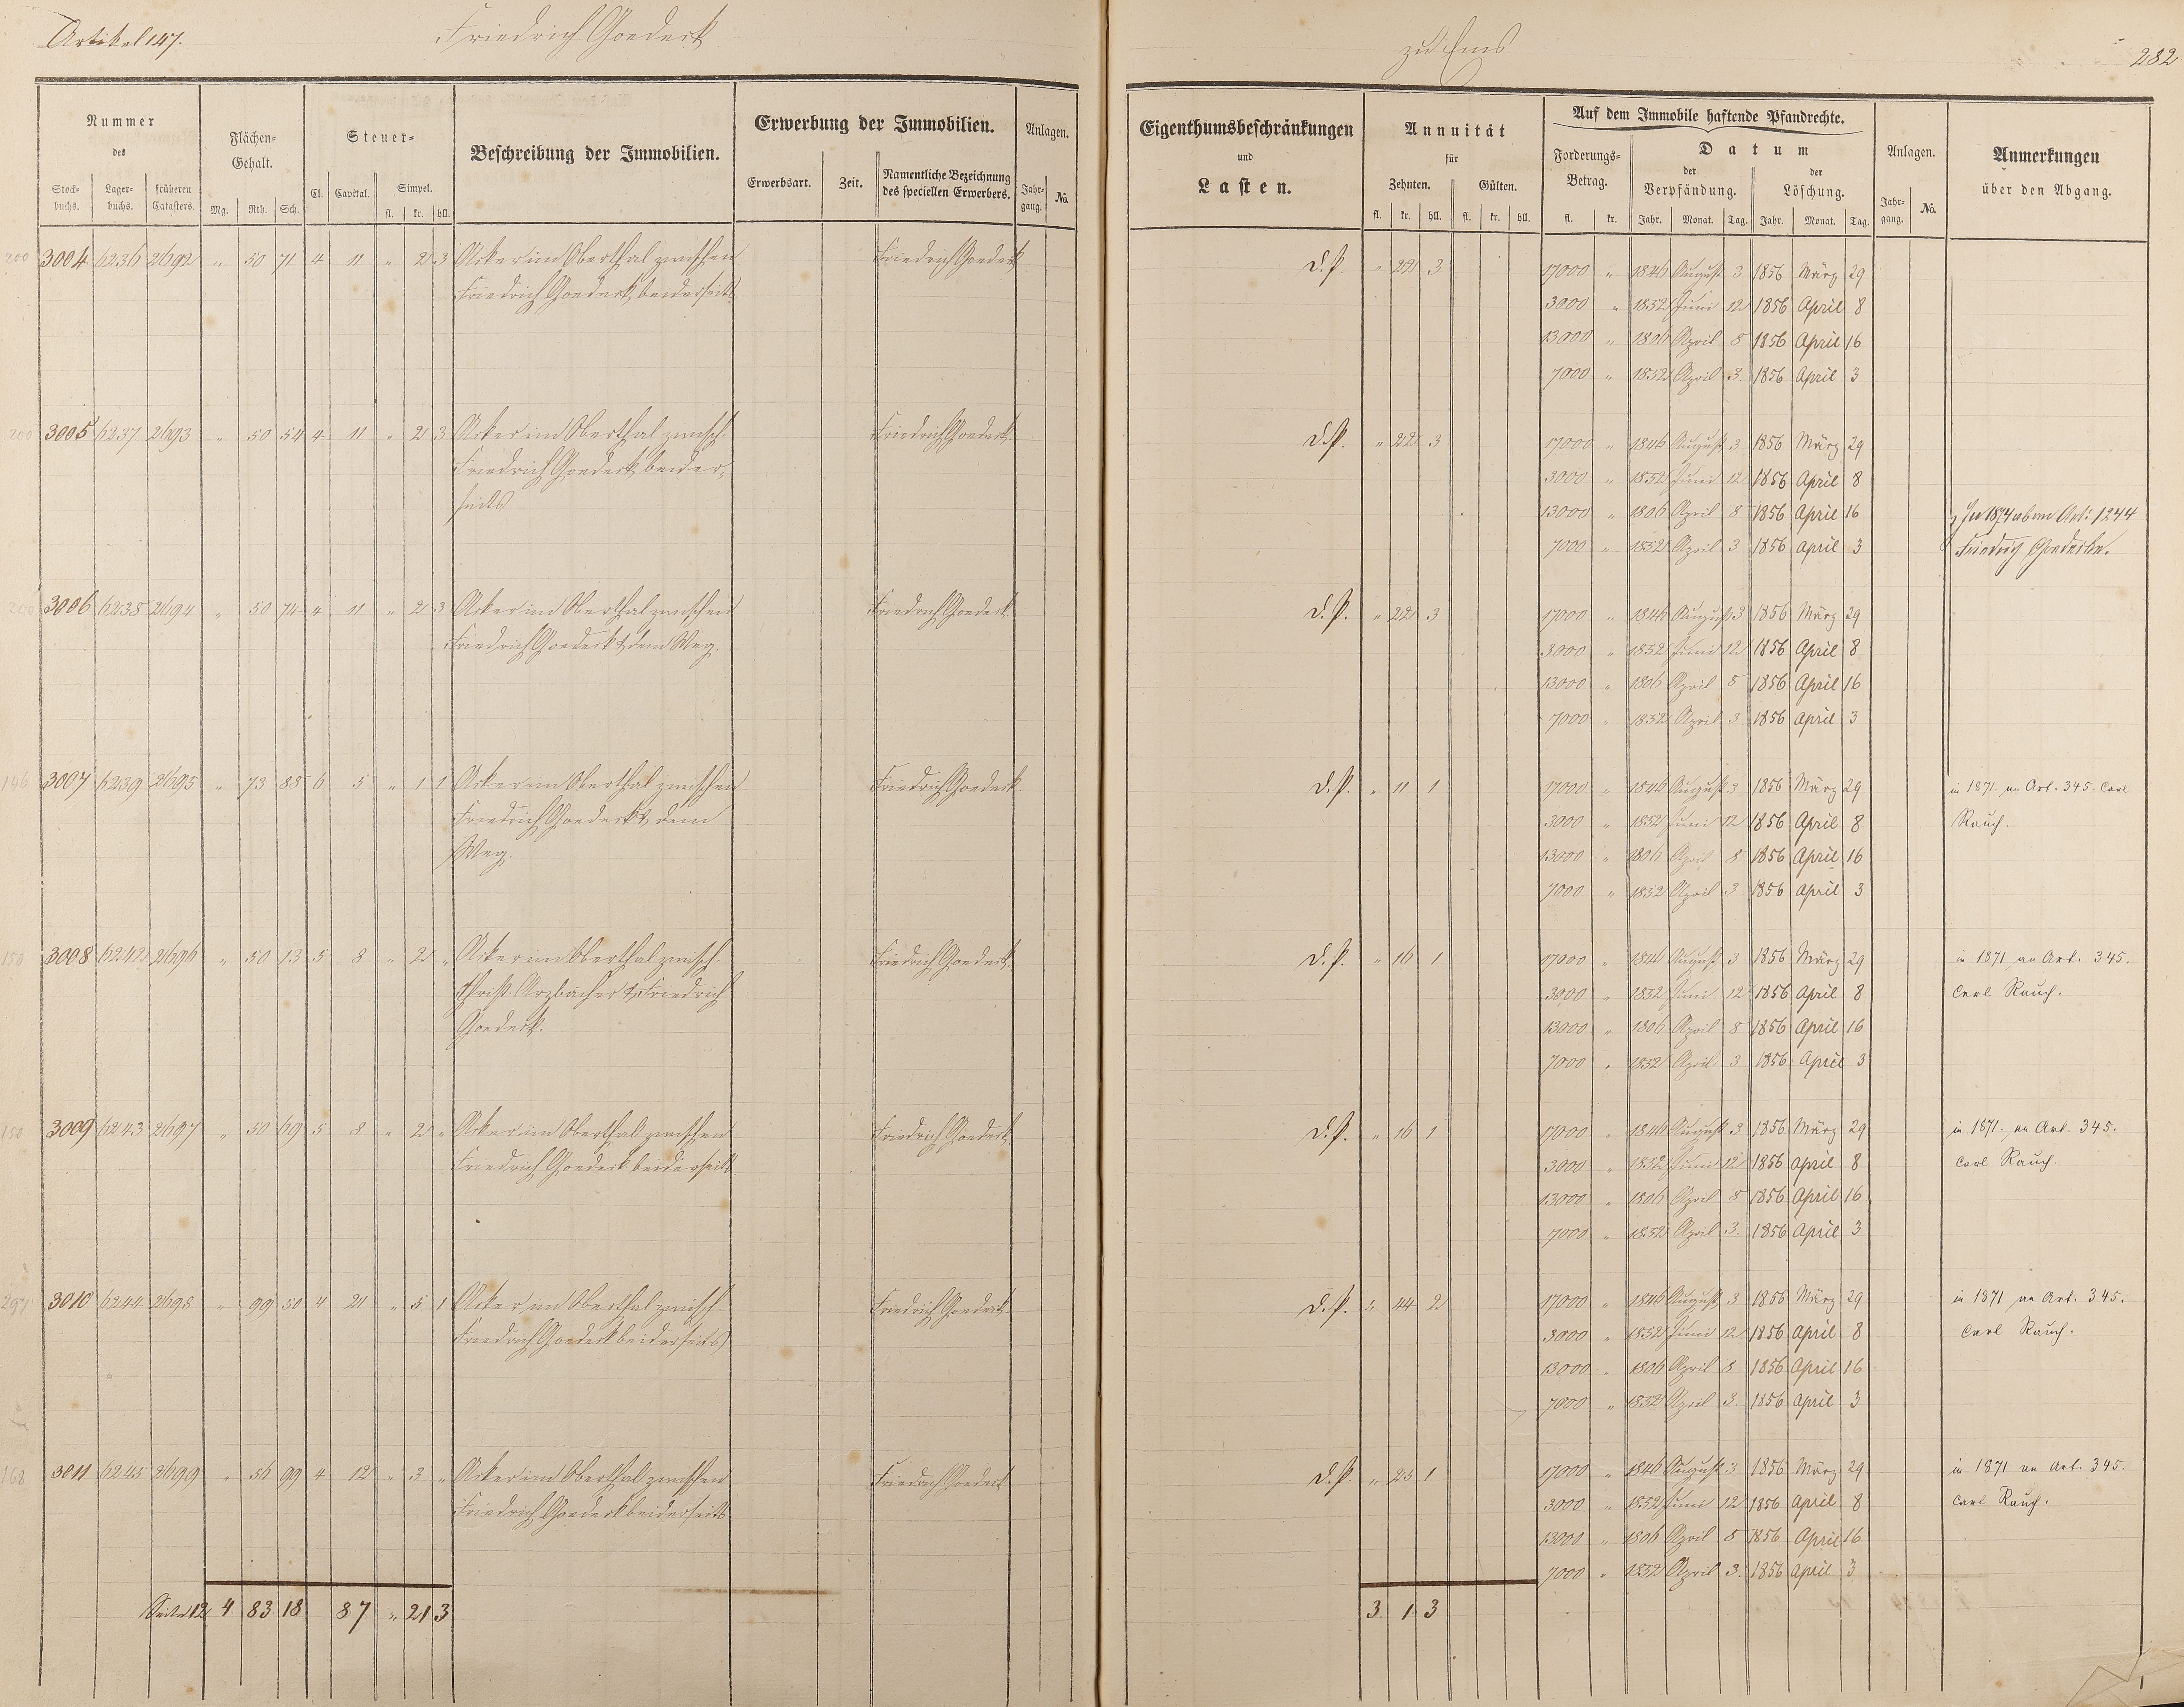 Artikel 147. Friedrich Goedeck zu Ems 282
Nummer des
Stockbuchs. Lagerbuchs. früheren Catasters.
Flächen-Gehalt.
Mg. Rth. Sch.
Steuer-
Cl. Capital. Simpel.
fl. kr. hll.
Beschreibung der Immobilien.
Erwerbung der Immobilien.
Erwerbsart. Zeit. Namentliche Bezeichnung des speciellen Erwerbers.
Anlagen.
Jahrgang. No.
Eigenthumsbeschränkungen
und
Lasten.
Annuität
für
Zehnten. Gülten.
fl. kr. hll. fl. kr. hll.
Auf dem Immobile haftende Pfandrechte.
Forderungs-Betrag.
fl. kr.
Datum
der Verpfändung. der Löschung.
Jahr. Monat. Tag. Jahr. Monat. Tag.
Anlagen.
Jahrgang. No.
Anmerkungen
über den Abgang.
200 3004 6236 2692 " 50 71 4 11 " 2 3 Acker im Oberthal zwischen Friedrich Goedeck D. P. " 22 3 17000 " 1846 August 3 1856 März 29
Friedrich Goedeck beiderseits 3000 " 1852 Juni 12 1856 April 8
13000 " 1806 April 8 1856 April 16
7000 " 1852 April 3. 1856 April 3
200 3005 6237 2693 " 50 54 4 11 " 2 3 Acker im Oberthal zwisch. Friedrich Goedeck. D. P. " 22 3 17000 " 1846 August 3 1856 März 29
Friedrich Goedeck beider- 3000 " 1852 Juni 12 1856 April 8
seits 13000 " 1806 April 8 1856 April 16 In 1874 ab an Art: 1244
7000 " 1852 April 3 1856 April 3 Friedrich Goedecke.
200 3006 6238 2694 " 50 74 4 11 " 2 3 Acker im Oberthal zwischen Friedrich Goedeck. D. P. " 22 3 17000 " 1846 August 3 1856 März 29
Friedrich Goedeck & dem Weg. 3000 " 1852 Juni 12 1856 April 8
13000 " 1806 April 8 1856 April 16
7000 " 1852 April 3 1856 April 3
146 3007 6239 2695 " 73 88 6 5 " 1 1 Acker im Oberthal zwischen Friedrich Goedeck D. P. " 11 1 17000 " 1846 August 3 1856 März 29 in 1871. an Art. 345. Carl
Friedrich Goedeck & dem 3000 " 1852 Juni 12 1856 April 8 Rauch.
Weg. 13000 " 1806 April 8 1856 April 16
7000 " 1852 April 3 1856 April 3
150 3008 6242 2696 " 50 13 5 8 " 2 " Acker im Oberthal zwisch. Friedrich Goedeck. D. P. " 16 1 17000 " 1846 August 3 1856 März 29 in 1871 an Art. 345.
Christ. Arzbächer & Friedrich 3000 " 1852 Juni 12 1856 April 8 Carl Rauch.
Goedeck. 13000 " 1806 April 8 1856 April 16
7000 " 1852 April 3 1856 April 3
150 3009 6243 2697 " 50 69 5 8 " 2 " Acker im Oberthal zwischen Friedrich Goedeck D. P. " 16 1 17000 " 1846 August 3 1856 März 29 in 1871. an Art. 345.
Friedrich Goedeck beiderseits 3000 " 1852 Juni 12 1856 April 8 Carl Rauch.
13000 " 1806 April 8 1856 April 16
7000 " 1852 April 3. 1856 April 3
297 3010 6244 2698 " 99 50 4 21 " 5 1 Acker im Oberthal zwisch Friedrich Goedeck. D. P. " 44 2 17000 " 1846 August 3 1856 März 29 in 1871 an Art. 345.
Friedrich Goedeck beiderseits 3000 " 1852 Juni 12 1856 April 8 Carl Rauch.
13000 " 1806 April 8 1856 April 16
7000 " 1852 April 3. 1856 April 3
168 3011 6245 2699 " 56 99 4 12 " 3 " Acker im Oberthal zwischen Friedrich Goedeck D. P. " 25 1 17000 " 1846 August 3 1856 März 29 in 1871 an Art. 345.
Friedrich Goedeck beiderseits 3000 " 1852 Juni 12 1856 April 8 Carl Rauch.
13000 " 1806 April 8 1856 April 16
7000 " 1852 April 3. 1856 April 3
Seite 12 4 83 18 87 " 21 3 3 1 3